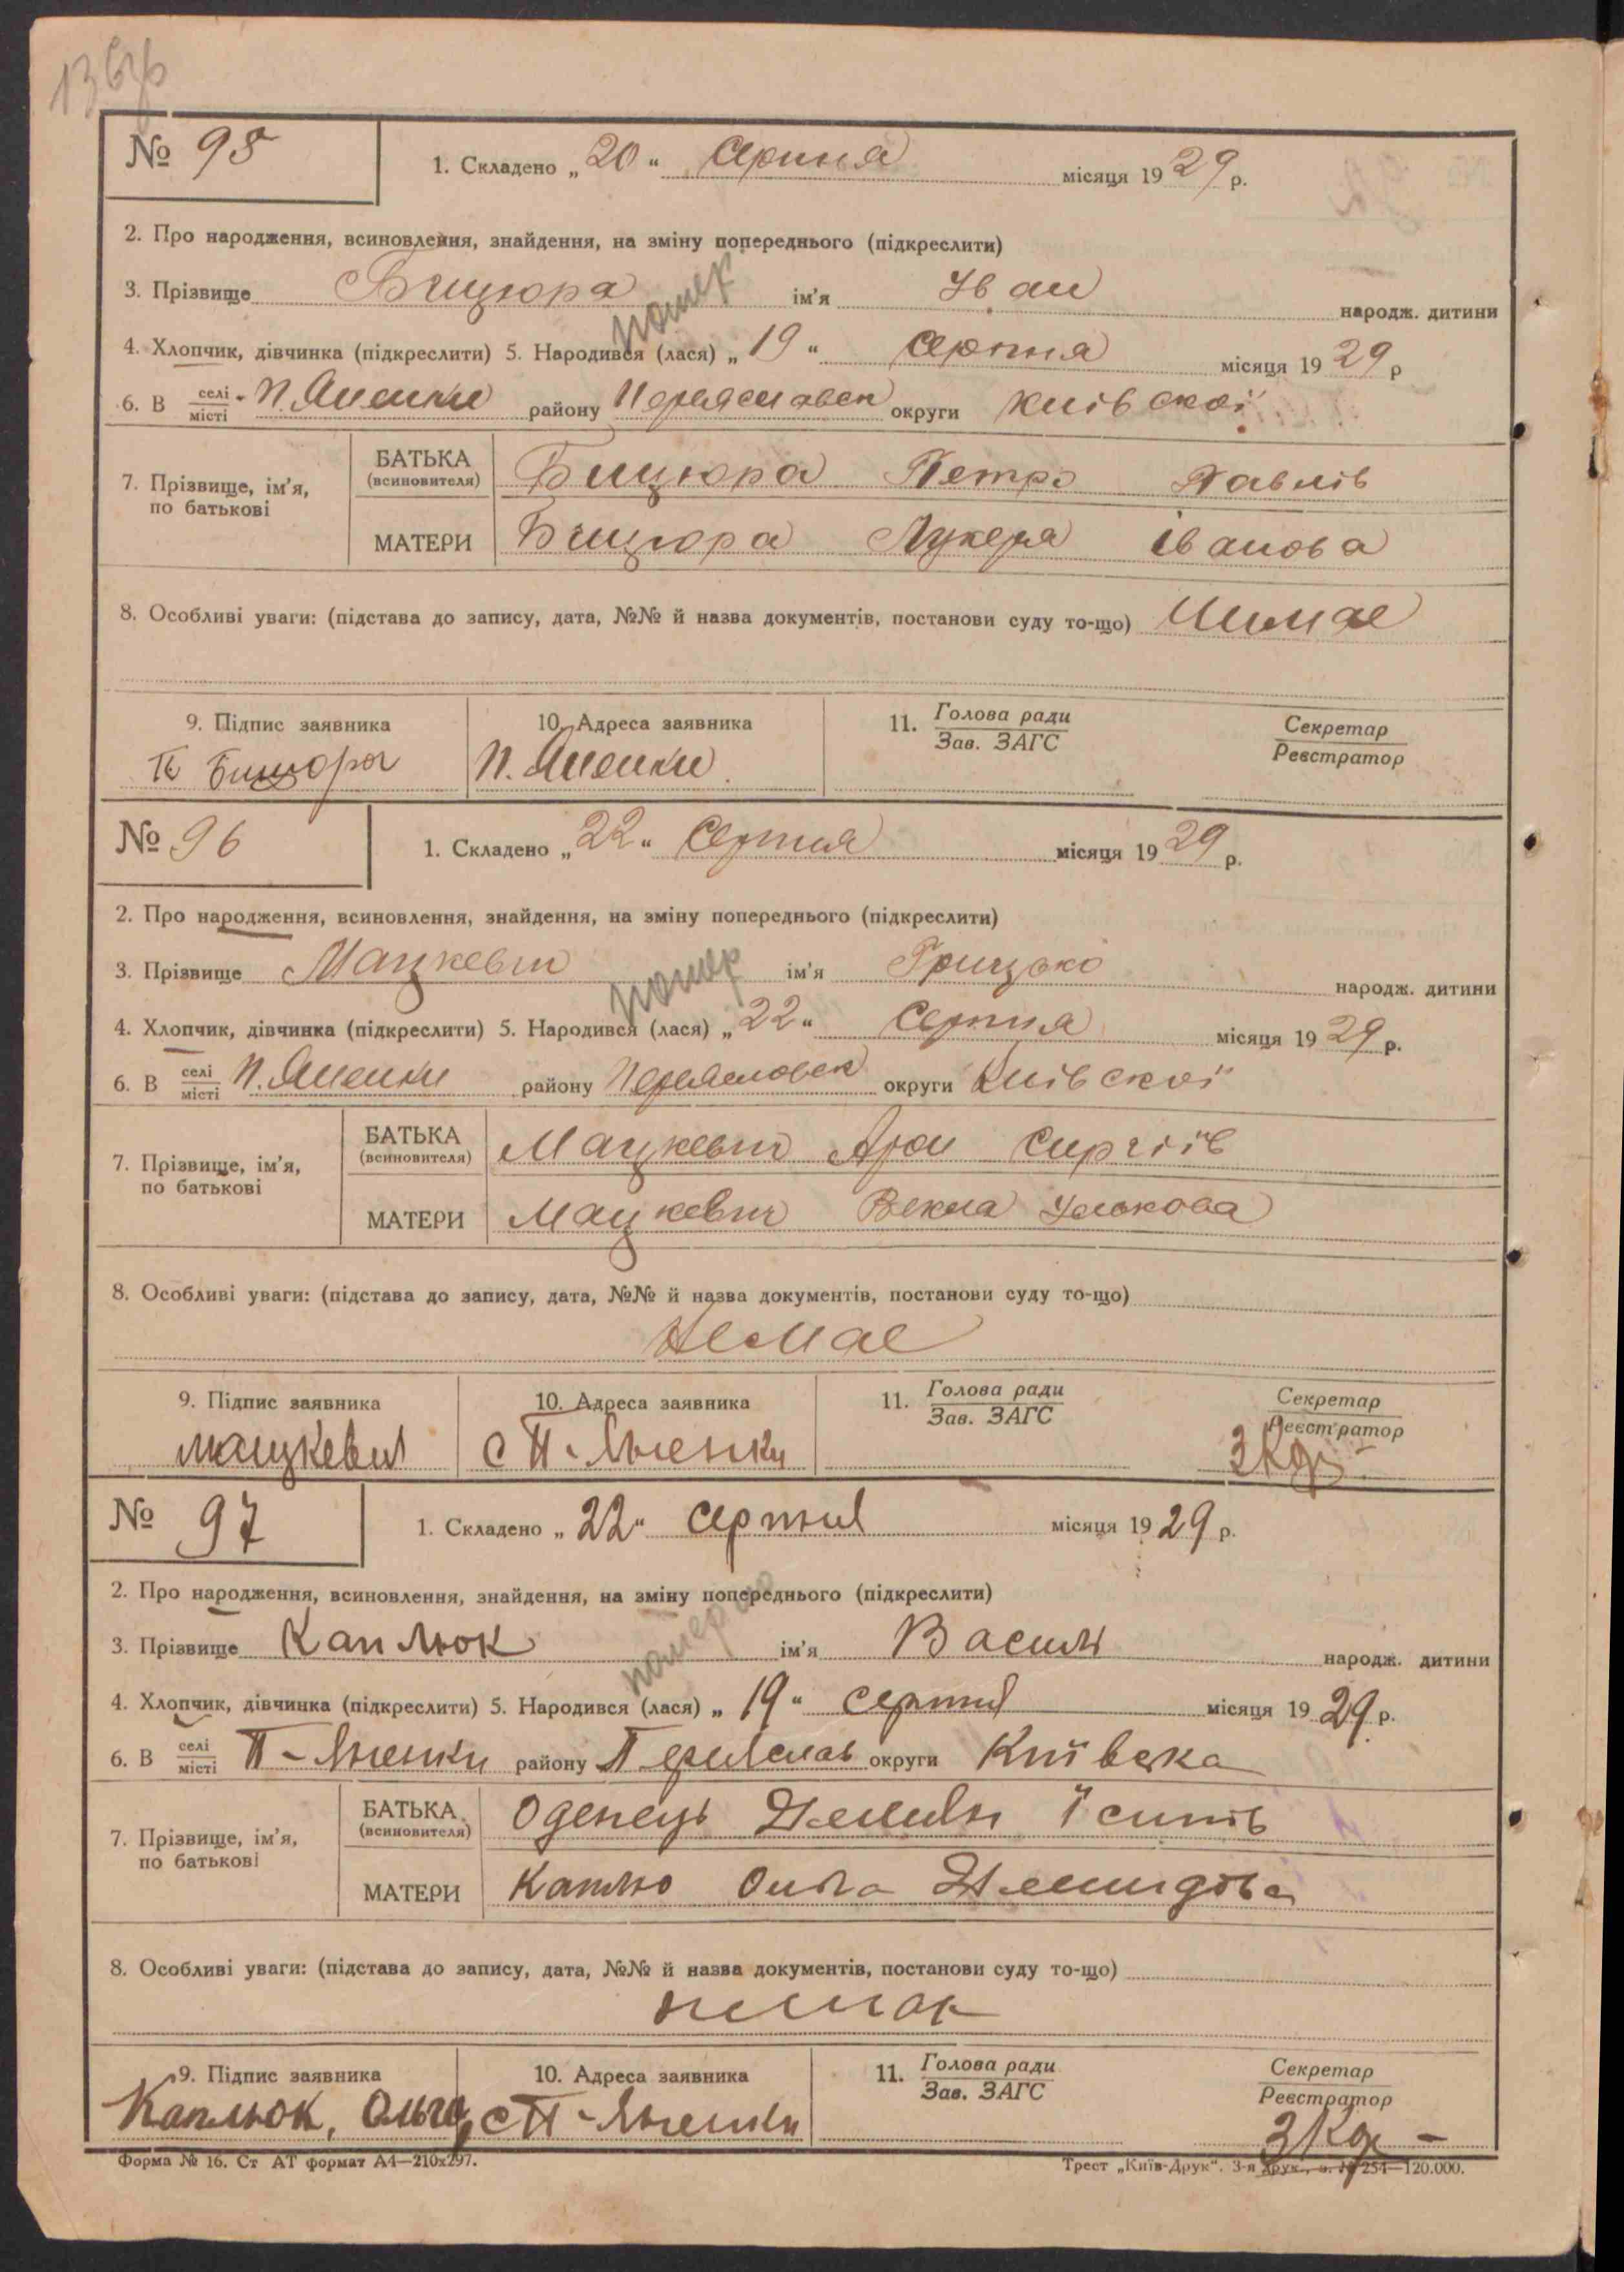 № 95
1. Складено „20“ Серпня місяця 1929 р.
2. Про народження, всиновлення, знайдення, на зміну попереднього (підкреслити)
3. Прізвище Бицюра ім'я Іван народж. дитини
помер
4. Хлопчик, дівчинка (підкреслити) 5. Народився (лася) „19“ Серпня місяця 1929 р
6. В селі місті П. Яненки району Переяславск округи Київскої
7. Прізвище, ім'я, по батькові
БАТЬКА (всиновителя) Бицюра Петро Павлів
МАТЕРИ Бицюра Лукера Іванова
8. Особливі уваги: (підстава до запису, дата, №№ й назва документів, постанови суду то-що) Немає
9. Підпис заявника 10. Адреса заявника 11. Голова ради Зав. ЗАГС Секретар Реєстратор
П. Яненки
№ 96
1. Складено „22“ Серпня місяця 1929 р.
2. Про народження, всиновлення, знайдення, на зміну попереднього (підкреслити)
3. Прізвище Мацкевич ім'я Грицько народж. дитини
помер
4. Хлопчик, дівчинка (підкреслити) 5. Народився (лася) „22“ Серпня місяця 1929 р.
6. В селі місті П. Яненки району Переясловск округи Київскої
7. Прізвище, ім'я, по батькові
БАТЬКА (всиновителя) Мацкевич Сиргіїв
МАТЕРИ Мацкевич Векла
8. Особливі уваги: (підстава до запису, дата, №№ й назва документів, постанови суду то-що)
Немає
9. Підпис заявника 10. Адреса заявника 11. Голова ради Зав. ЗАГС Секретар Реєстратор
Мацкевич с П-Яненки
№ 97
1. Складено „22“ серпня місяця 1929 р.
2. Про народження, всиновлення, знайдення, на зміну попереднього (підкреслити)
3. Прізвище Каплюк ім'я Василь народж. дитини
4. Хлопчик, дівчинка (підкреслити) 5. Народився (лася) „19“ серпня місяця 1929 р.
6. В селі місті П-Яненки району Переяслав округи Київска
7. Прізвище, ім'я, по батькові
БАТЬКА (всиновителя) Оденець Демян
МАТЕРИ Каплю Ольга Демидова
8. Особливі уваги: (підстава до запису, дата, №№ й назва документів, постанови суду то-що)
немає
9. Підпис заявника 10. Адреса заявника 11. Голова ради Зав. ЗАГС Секретар Реєстратор
Каплюк, Ольга с П-Яненки
Форма № 16. Ст АТ формат А4—210х297. Трест „Київ-Друк“. 3-я друк., 254—120.000.